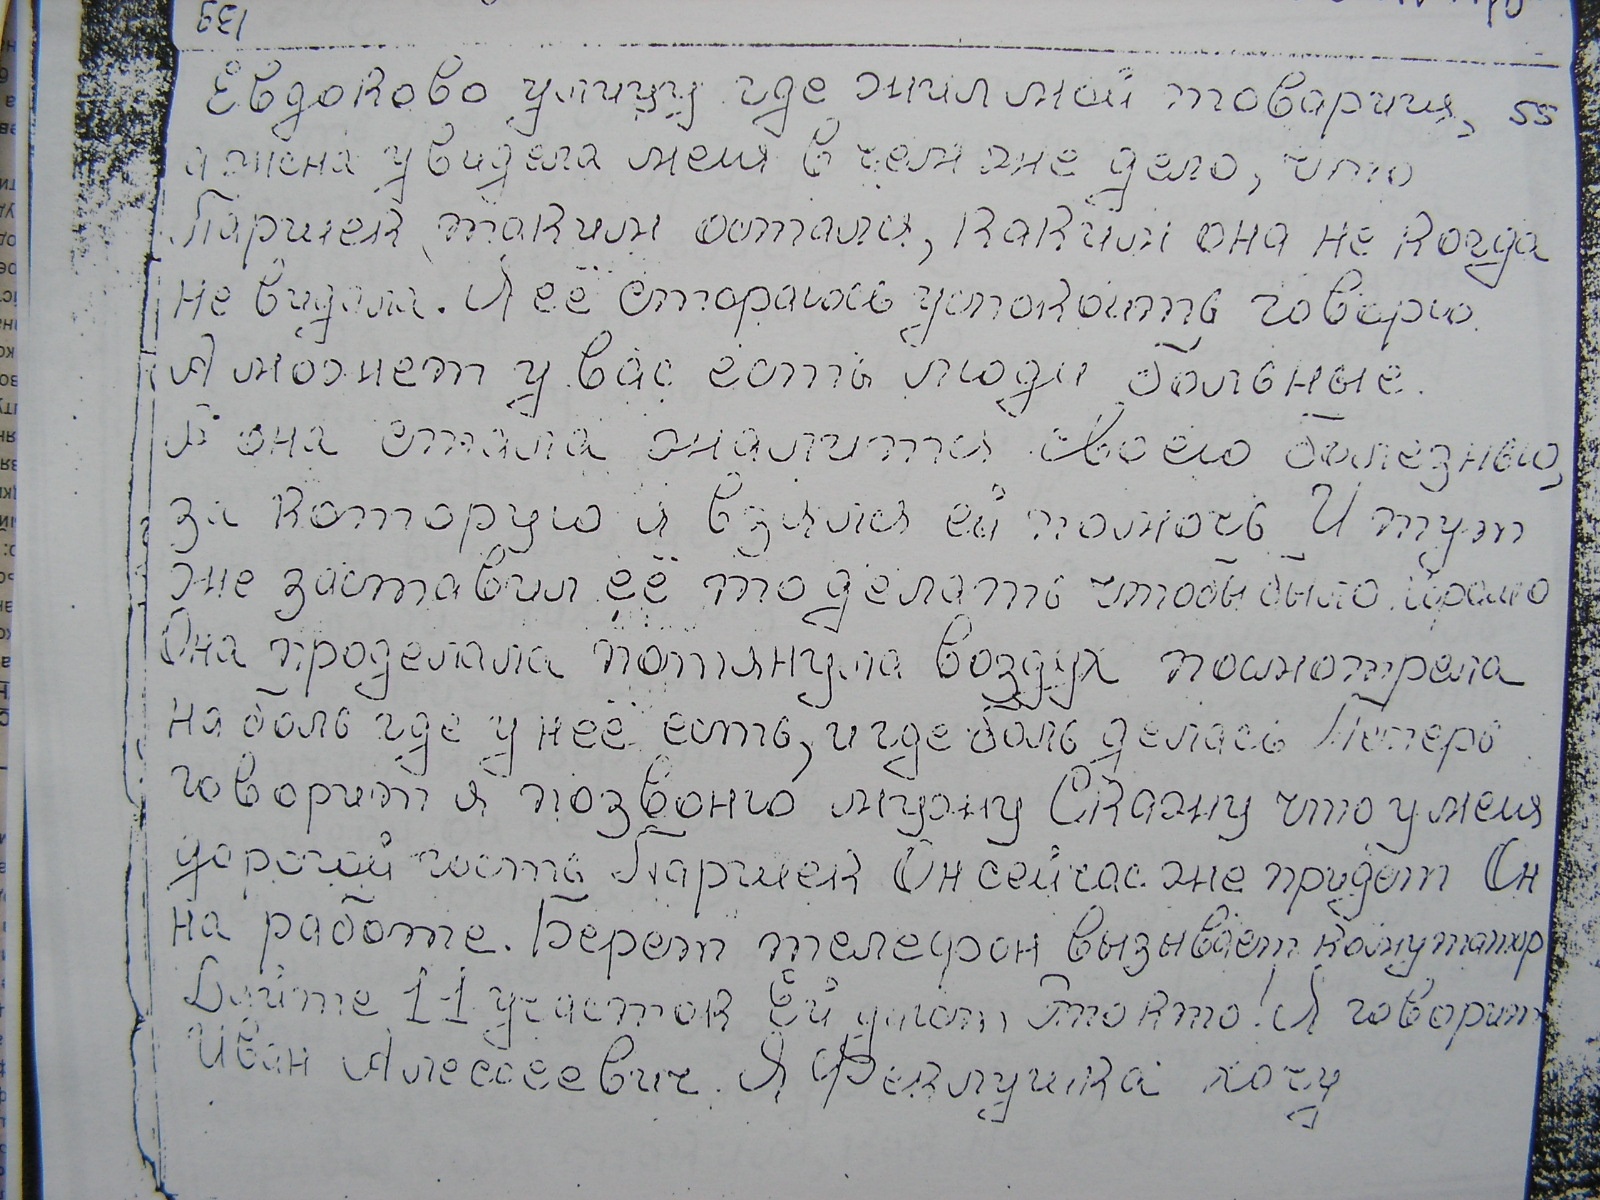 139
Евдоково улицу где жил мой товарищ, 55
а жена увидела меня в чем же дело, что
Паршек таким остался, каким она не когда
не видела. Я её стораюсь успокоить говорю.
Аможнет у вас есть люди больные.
А она стала жалится своею болезнью,
за которую я взялся ей помочь И тут
же заставил её то делать чтобы было
Она проделала потянула воздух посмотрела
на боль где у неё есть, и где боль делась Теперь
говорит я позвоню мужу Скажу что у меня
дорогой гость Паршек Он сейчас же придёт Он
на работе. Берет телефон вызывает комутатор
Дайте 11 участок Ей дают Это кто! Я говорит
Иван Алексеевич. Я Феклушка хочу